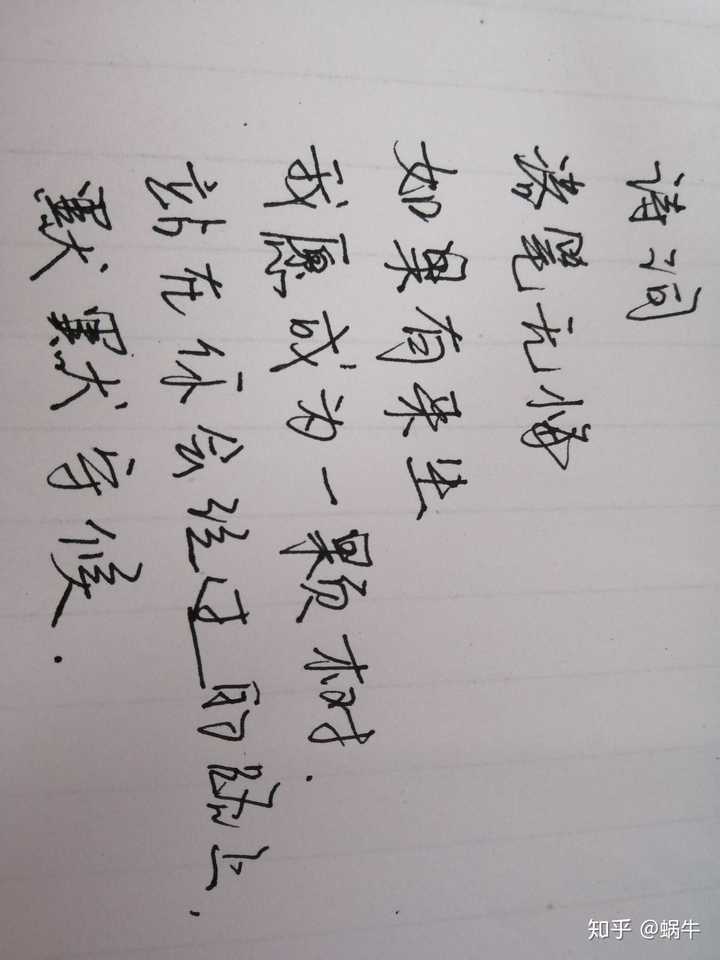 诗词
落笔无悔
如果有来生
我愿成为一颗树.
站在你会经过的路上.
默默守候.
知乎 @蜗牛